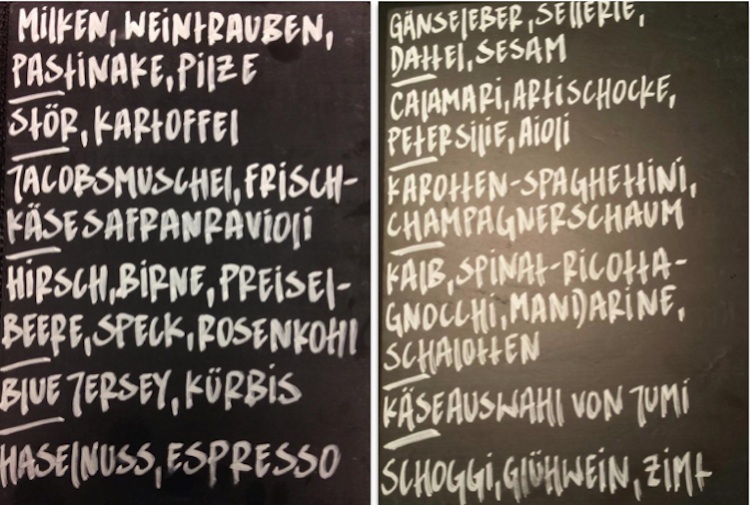 MILKEN, WEINTRAUBEN,
PASTINAKE, PILZE
STÖR, KARTOFFEL
JACOBSMUSCHEL, FRISCH-
KÄSESAFRANRAVIOLI
HIRSCH, BIRNE, PREISEL-
BEERE, SPECK, ROSENKOHL
BLUE JERSEY, KÜRBIS
HASELNUSS, ESPRESSO
GÄNSELEBER, SELLERIE,
DATTEL, SESAM
CALAMARI, ARTISCHOCKE,
PETERSILIE, AIOLI
KAROTTEN-SPAGHETTINI,
CHAMPAGNERSCHAUM
KALB, SPINAT-RICOTTA-
GNOCCHI, MANDARINE,
SCHALOTTEN
KÄSEAUSWAHL VON JUMI
SCHOGGI, GLÜHWEIN, ZIMT